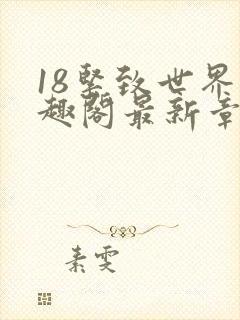 18紧致世界
趣阁最新章
素雯